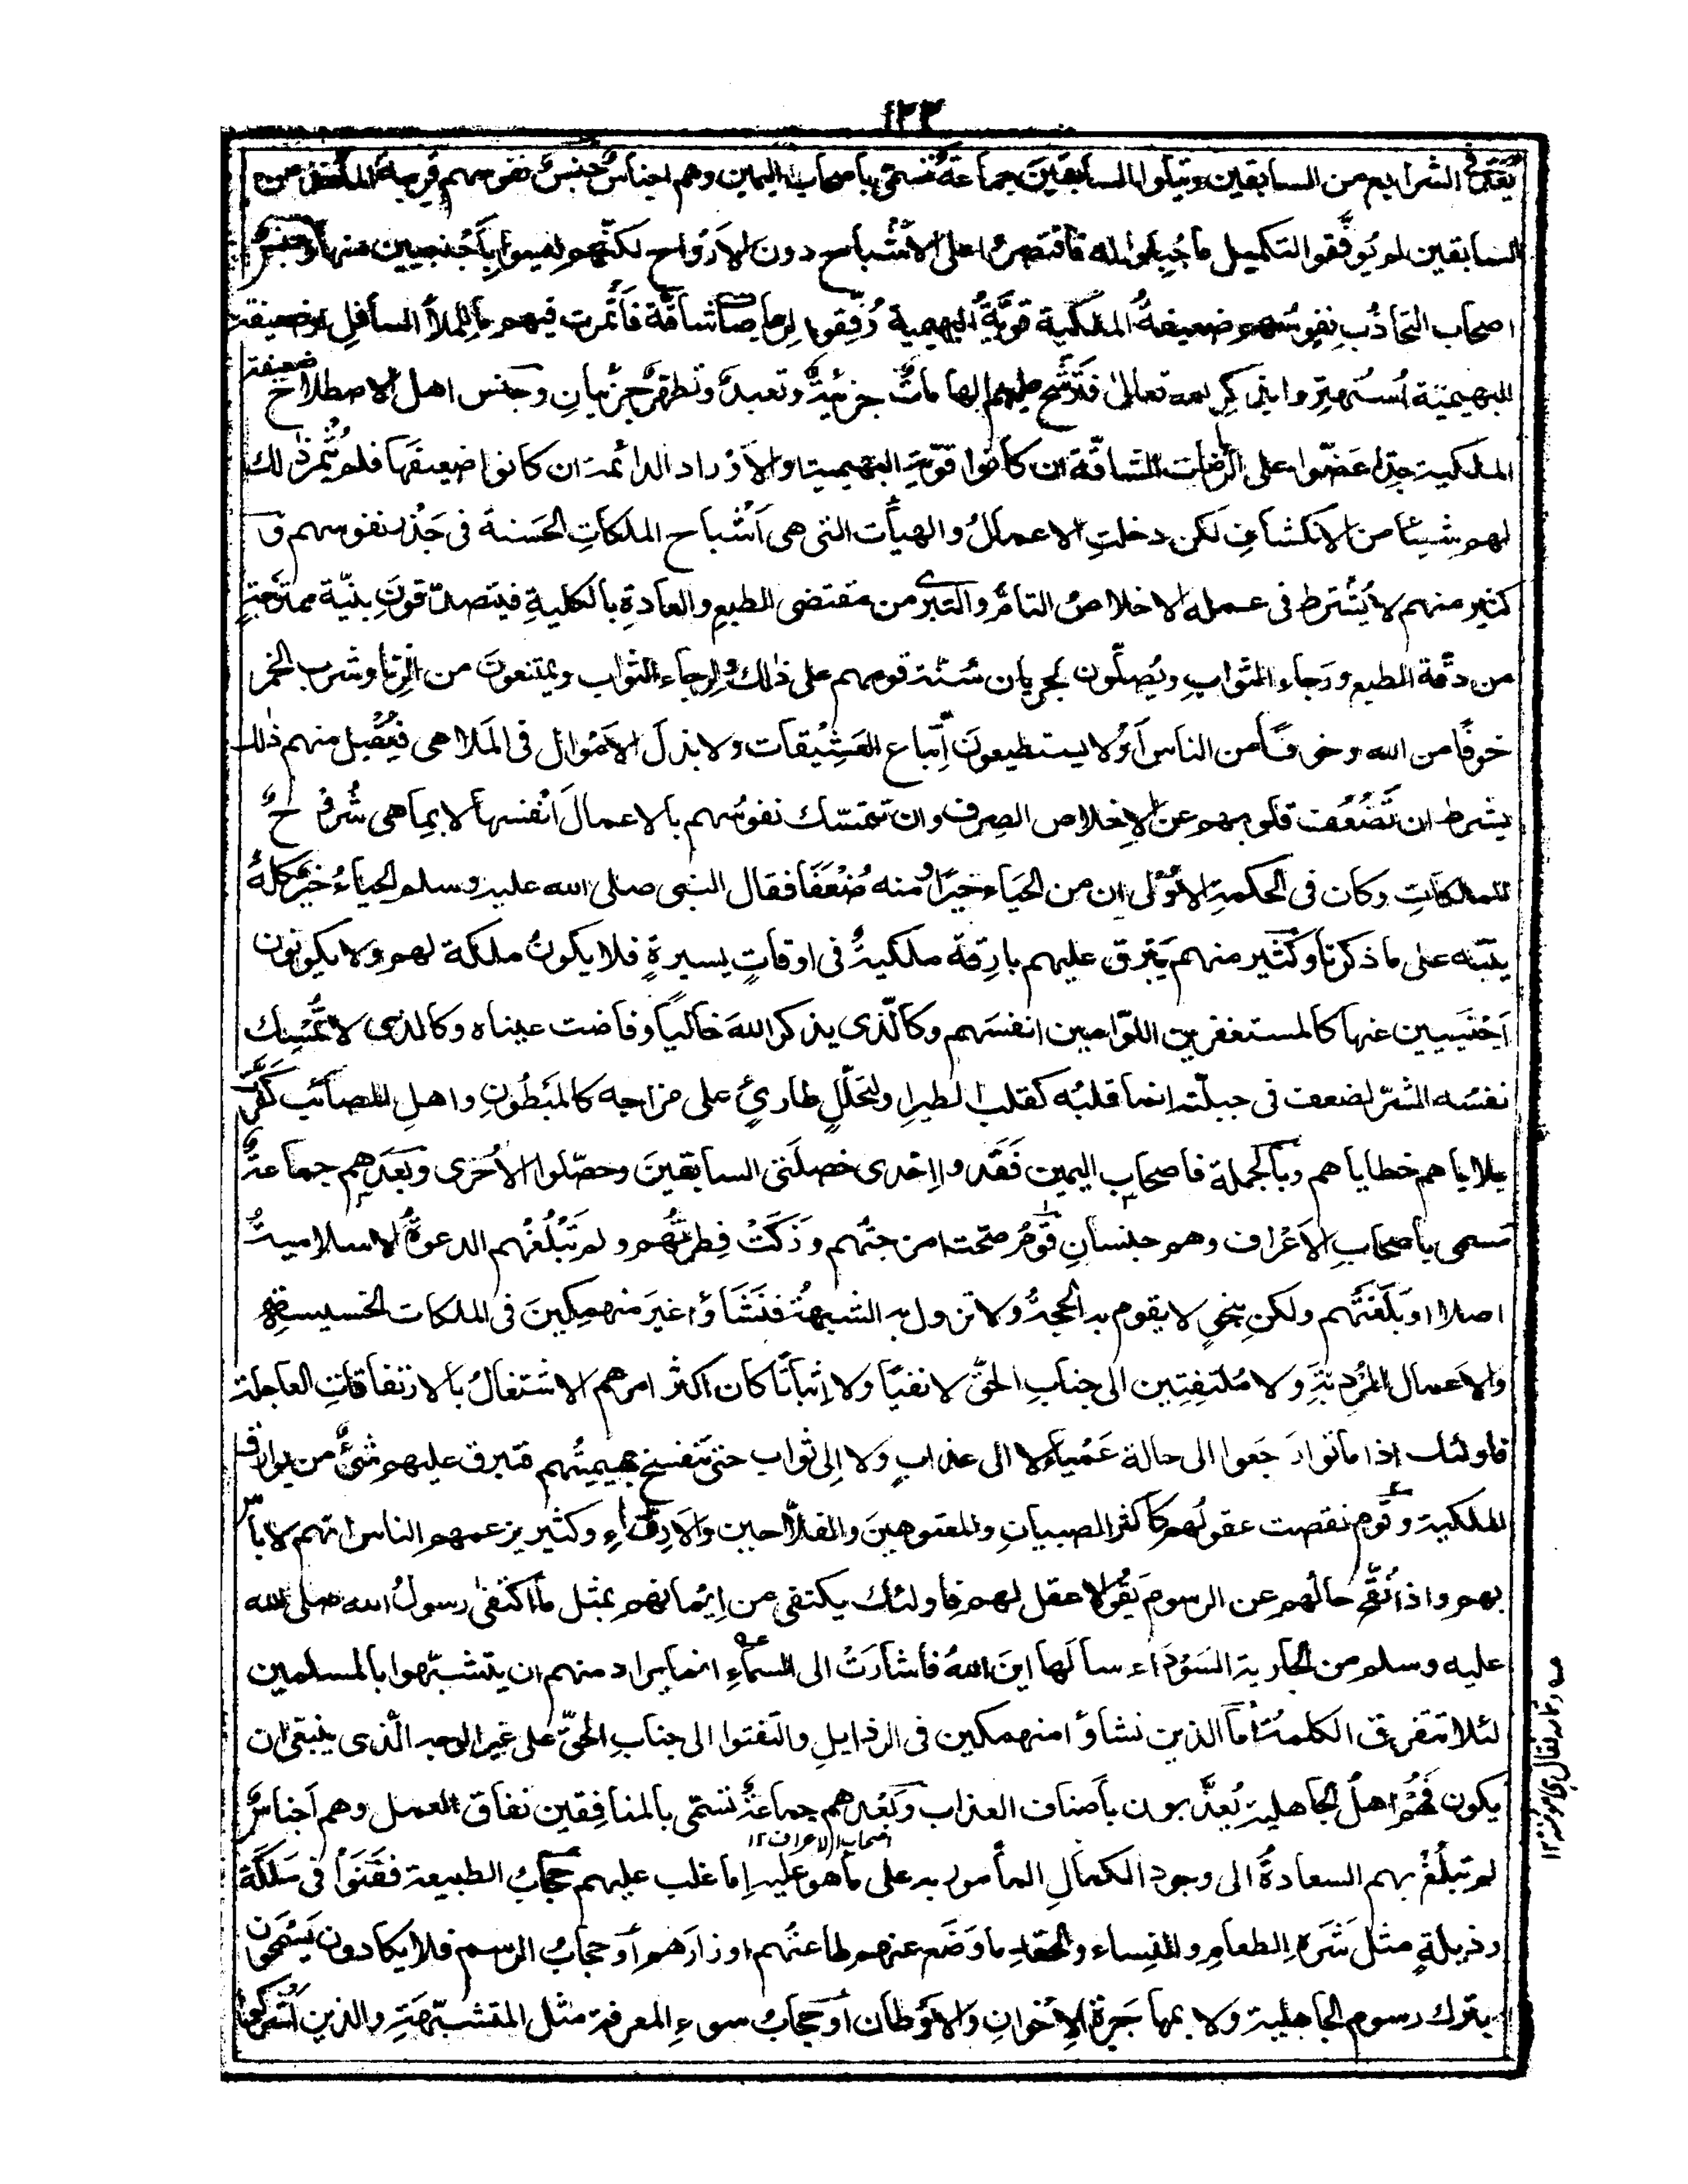 ١٢٣
الشرايع من السابقين ويتلوا السابقين جماعة تسمى باصحاب اليمين وهم اجناس جنس نفوسهم قريبة المأخذ من
السابقين لم يوفقوا التكميل ما جبلوا له فاقتصروا على الاشباح دون الارواح لكنهم ليسوا باجنبيين منها وجنس
اصحاب التجاذب نفوسهم ضعيفة الملكية قوية البهيمية وفقوا لرياضات شاقة فاثمرت فيهم ما للملأ السافل او ضعيفة
البهيمية استهتروا بذكر الله تعالى فترشح عليهم الهامات جزئية وتعبد وتطهر جزئيان وجنس اهل الاصطلاح ضعيفة
الملكية جدا عضوا على الرياضات الشاقة ان كانوا قوية البهيمية او الاوراد الدائمة ان كانوا ضعيفها فلم يثمر ذلك
لهم شيئا من الانكشاف لكن دخلت الاعمال والهيأت التى هى اشباح الملكات الحسنة فى جذر نفوسهم و
كثير منهم لا يشترط فى عمله الاخلاص التام والتبرى من مقتضى الطبع والعادة بالكلية فيتصدقون بنية ممتزجة
من رقة الطبع ورجاء الثواب ويصلون لجريان سنة قومهم على ذلك ولرجاء الثواب ويمتنعون من الزنا وشرب الخمر
خوفا من الله وخوفا من الناس او لا يستطيعون اتباع العشيقات ولا بذل الاموال فى الملاهى فيقبل منهم ذلك
بشرط ان تضعف قلوبهم عن الاخلاص الصرف وان تتمسك نفوسهم بالاعمال انفسها لا بما هى شروح
للملكات وكان فى الحكمة الاولى ان من الحياء خيرا ومنه ضعفا فقال النبى صلى الله عليه وسلم الحياء خير كله
ينبه على ما ذكرنا وكثير منهم يبرق عليهم بارقة ملكية فى اوقات يسيرة فلا يكون ملكة لهم ولا يكونون
اجنبيين عنها كالمستغفرين اللوامين انفسهم وكالذى يذكر الله خاليا وفاضت عيناه وكالذى لا تمسك
نفسه الشر لضعف فى جبلته انما قلبه كقلب الطير او لتحلل طارئ على مزاجه كالمبطون واهل المصائب كفرت
بلاياهم خطاياهم وبالجملة فاصحاب اليمين فقدوا احدى خصلتى السابقين وحصلوا الاخرى وبعدهم جماعة
تسمى باصحاب الاعراف وهم جنسان قوم صحت امزجتهم وزكت فطرتهم ولم تبلغهم الدعوة الاسلامية
اصلا او بلغتهم ولكن بنحو لا يقوم به الحجة ولا تزول به الشبهة فنشأوا غير منهمكين فى الملكات الخسيسة
والاعمال المردية ولا ملتفتين الى جناب الحق لا نفيا ولا اثباتا كان اكثر امرهم الاشتغال بالارتفاقات العاجلة
فاولئك اذا ماتوا رجعوا الى حالة عمياء لا الى عذاب ولا الى ثواب حتى تنفسخ بهيميتهم فتبرق عليهم شئ من بوارق
الملكية وقوم نقصت عقولهم كاكثر الصبيان والمعتوهين والفلاحين والارقاء وكثير يزعمهم الناس انهم لا بأس
بهم واذا نقح حالهم عن الرسوم بقوا لا عقل لهم فاولئك يكتفى من ايمانهم بمثل ما اكتفى رسول الله صلى الله
عليه وسلم من الجارية السوداء سألها اين الله فاشارت الى السماء انما يراد منهم ان يتشبهوا بالمسلمين
لئلا تتفرق الكلمة اما الذين نشأوا منهمكين فى الرذايل والتفتوا الى جناب الحق على غير الوجه الذى ينبغى ان
يكون فهم اهل الجاهلية يعذبون باصناف العذاب وبعدهم جماعة تسمى بالمنافقين نفاق العمل وهم اجناس
اصحاب الاعراف ١٢
لم تبلغ بهم السعادة الى وجود الكمال المأمور به على ما هو عليه اما غلب عليهم حجاب الطبيعة ففنوا فى ملكة
رذيلة مثل شره الطعام والنساء والحقد ما وضع عنهم طاعتهم اوزارهم او حجاب الرسم فلا يكادون يسمحون
بترك رسوم الجاهلية ولا بمهاجرة الاخوان والاوطان او حجاب سوء المعرفة مثل المتشبهة والذين اشركوا